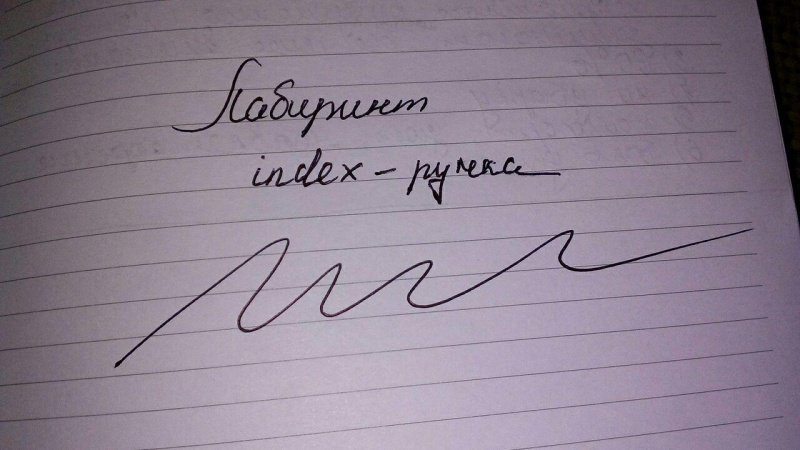 Лабиринт
index - ручка